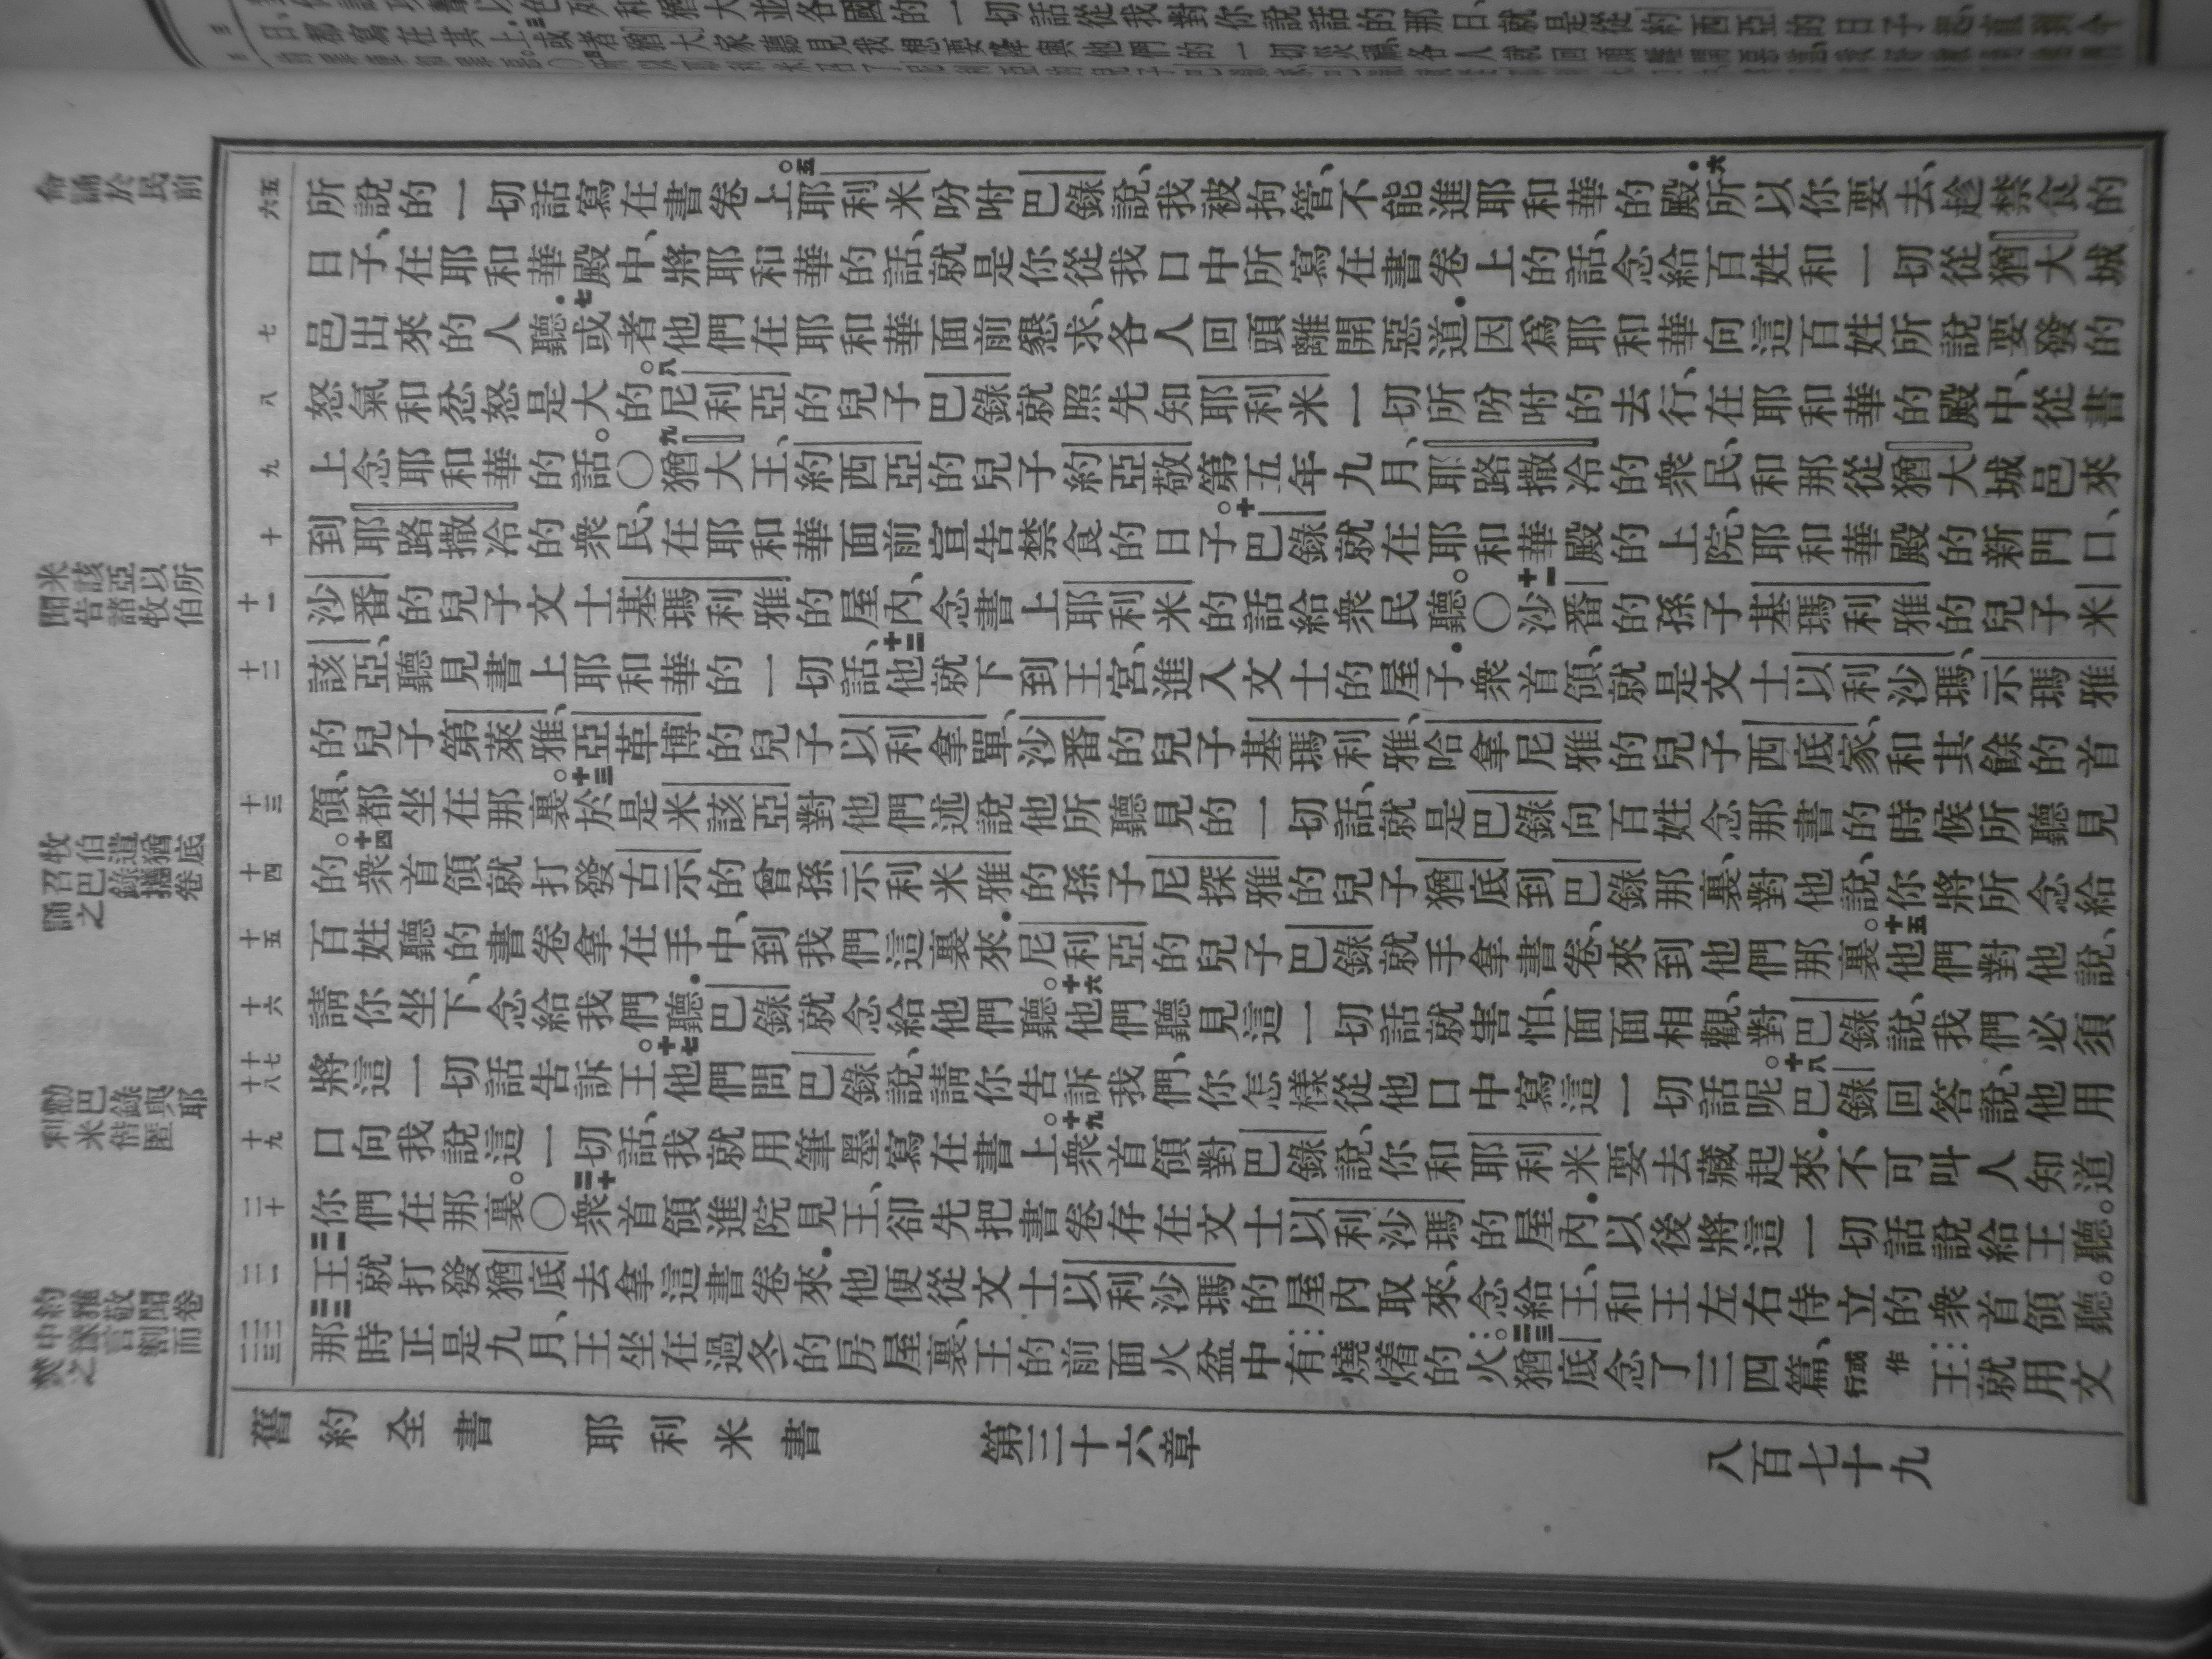 命誦於民前
米該亞以所
聞告諸牧伯
牧伯遣猶底
召巴錄攜卷
誦之
勸巴錄與耶
利米偕匿
約雅敬聞卷
中豫言割而
焚之
五 六
七
八
九
十
十一
十二
十三
十四
十五
十六
十七 十八
十九
二十
二一
二二 二三
所說的一切話寫在書卷上。五耶利米吩咐巴錄說、我被拘管、不能進耶和華的殿.六所以你要去、趁禁食的
日子、在耶和華殿中、將耶和華的話、就是你從我口中所寫在書卷上的話、念給百姓和一切從猶大城
邑出來的人聽.七或者他們在耶和華面前懇求、各人回頭離開惡道.因爲耶和華向這百姓所說要發的
怒氣和忿怒是大的。八尼利亞的兒子巴錄就照先知耶利米一切所吩咐的去行、在耶和華的殿中、從書
上念耶和華的話。〇九猶大王、約西亞的兒子約亞敬第五年九月、耶路撒冷的衆民、和那從猶大城邑來
到耶路撒冷的衆民、在耶和華面前宣告禁食的日子。十巴錄就在耶和華殿的上院、耶和華殿的新門口、
沙番的兒子文士基瑪利雅的屋內、念書上耶利米的話給衆民聽。〇十一沙番的孫子基瑪利雅的兒子米
該亞、聽見書上耶和華的一切話、十二他就下到王宮、進入文士的屋子.衆首領、就是文士以利沙瑪、示瑪雅
的兒子第萊雅、亞革博的兒子以利拿單、沙番的兒子基瑪利雅、哈拿尼雅的兒子西底家、和其餘的首
領、都坐在那裏。十三於是米該亞對他們述說他所聽見的一切話、就是巴錄向百姓念那書的時候所聽見
的。十四衆首領就打發古示的曾孫示利米雅的孫子尼探雅的兒子猶底到巴錄那裏、對他說、你將所念給
百姓聽的書卷拿在手中、到我們這裏來.尼利亞的兒子巴錄就手拿書卷、來到他們那裏。十五他們對他說、
請你坐下、念給我們聽.巴錄就念給他們聽。十六他們聽見這一切話就害怕、面面相觀、對巴錄說、我們必須
將這一切話告訴王。十七他們問巴錄說、請你告訴我們、你怎樣從他口中寫這一切話呢。十八巴錄回答說、他用
口向我說這一切話、我就用筆墨寫在書上。十九衆首領對巴錄說、你和耶利米要去藏起來.不可叫人知道
你們在那裏。〇二十衆首領進院見王、卻先把書卷存在文士以利沙瑪的屋內.以後將這一切話說給王聽。
二一王就打發猶底去拿這書卷來.他便從文士以利沙瑪的屋內取來、念給王、和王左右侍立的衆首領聽。
二二那時正是九月、王坐在過冬的房屋裏、王的前面火盆中有燒熾着的火。二三猶底念了三四篇、或作行王就用文
舊約全書 耶利米書 第三十六章 八百七十九